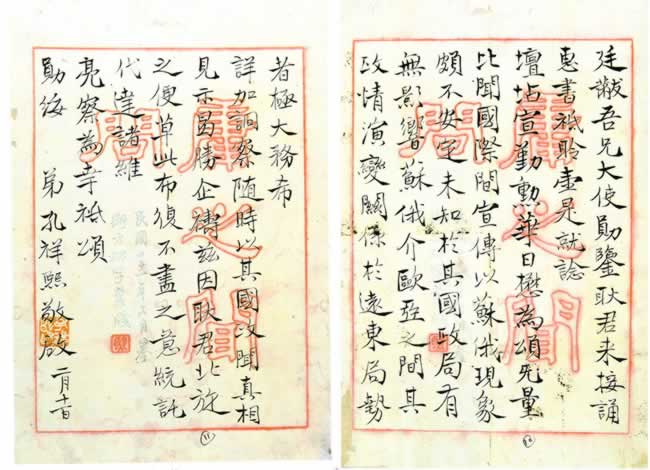 廷黻吾兄大使勛鑒耿君来接誦
惠書祗聆壹是就諗
壇坫宣勤勳華日懋為頌無量
比聞國際間宣傳以蘇俄現象
頗不安定未知於其國政局有
無影響蘇俄介歐亞之間其
政情演變關係於遠東局勢
者極大務希
詳加詗察随時以其國政聞真相
見示曷勝企禱茲因耿君北旋
之便草此布復不盡之意統託
代達諸維
亮察為幸祗頌
勛綏 弟孔祥熙敬啟 二月
11